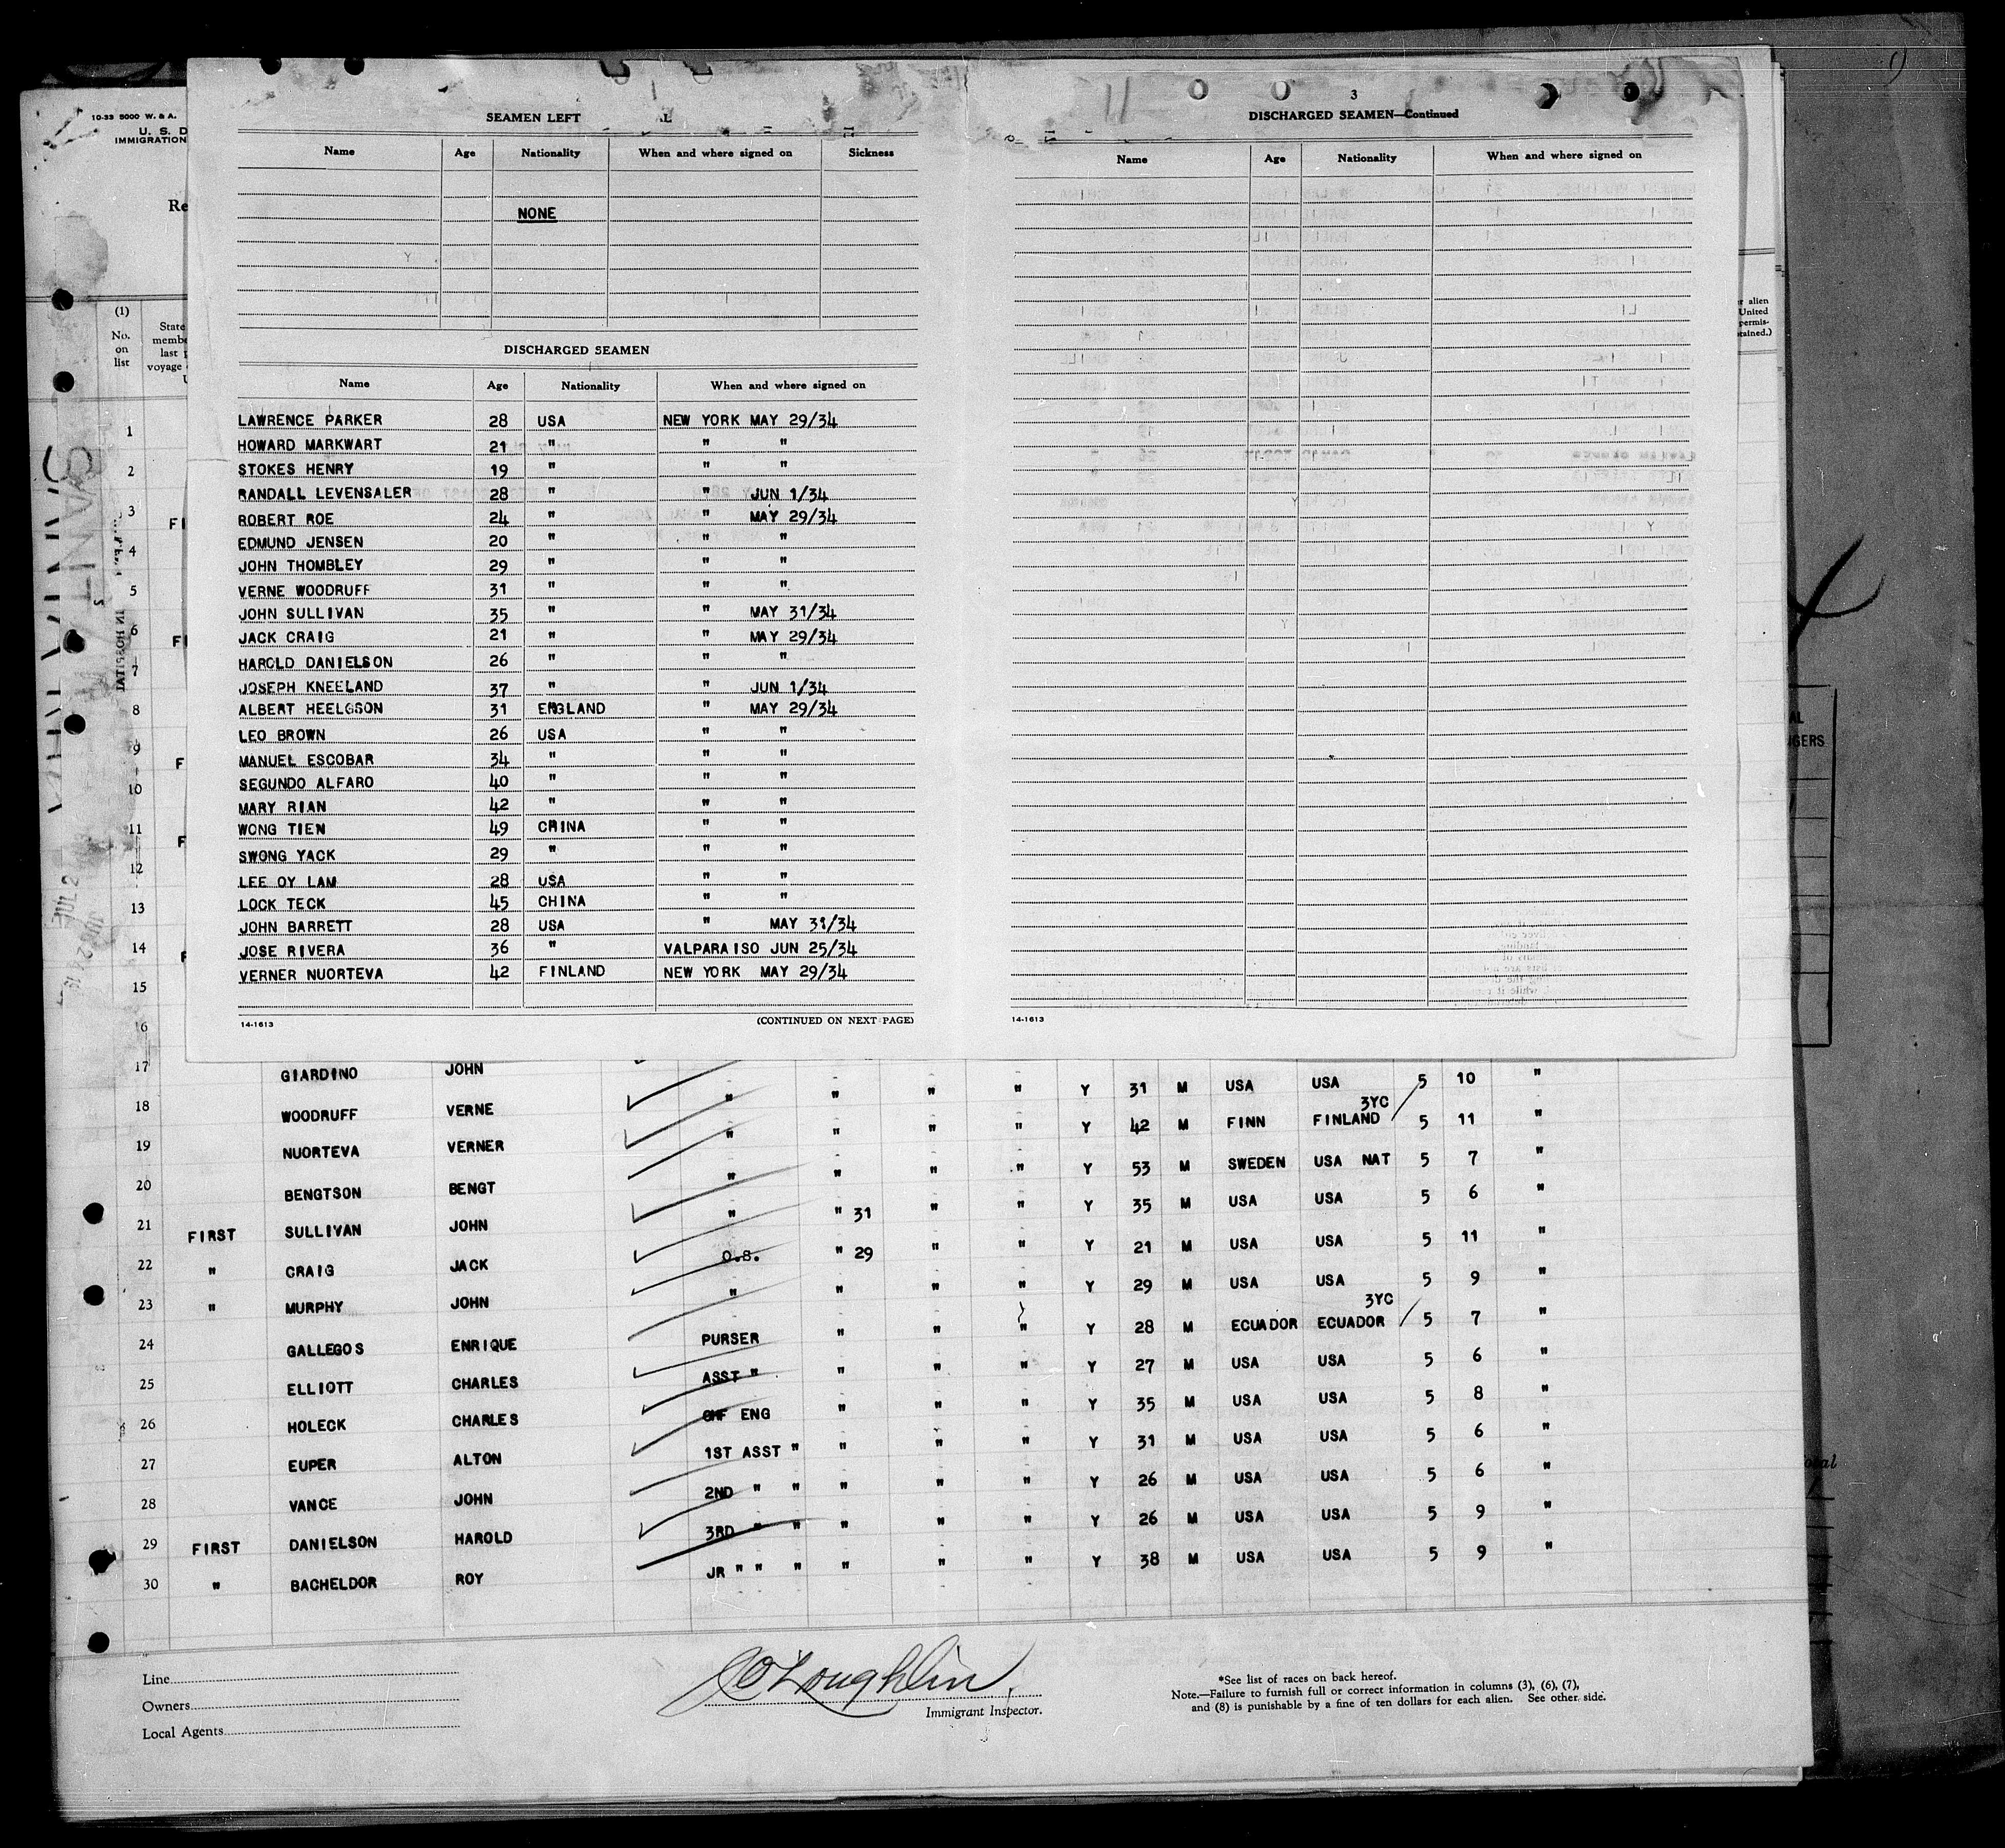 10-33 5000 W. & A.
U. S. D
IMMIGRATION
Re
(1)
No.
on
list
State
membe
last p
voyage
SEAMEN LEFT
Name Age Nationality When and where signed on Sickness
NONE
DISCHARGED SEAMEN
Name Age Nationality When and where signed on
LAWRENCE PARKER 28 USA NEW YORK MAY 29/34
HOWARD MARKWART 21 " " "
STOKES HENRY 19 " " "
RANDALL LEVENSALER 28 " " JUN 1/34
ROBERT ROE 24 " " MAY 29/34
EDMUND JENSEN 20 " " "
JOHN THOMBLEY 29 " " "
VERNE WOODRUFF 31 " " "
JOHN SULLIVAN 35 " " MAY 31/34
JACK CRAIG 21 " " MAY 29/34
HAROLD DANIELSON 26 " " "
JOSEPH KNEELAND 37 " " JUN 1/34
ALBERT HEELGSON 31 ENGLAND " MAY 29/34
LEO BROWN 26 USA " "
MANUEL ESCOBAR 34 " " "
SEGUNDO ALFARO 40 " " "
MARY RIAN 42 " " "
WONG TIEN 49 CHINA " "
SWONG YACK 29 " " "
LEE OY LAM 28 USA " "
LOCK TECK 45 CHINA " "
JOHN BARRETT 28 USA " MAY 31/34
JOSE RIVERA 36 " VALPARAISO JUN 25/34
VERNER NUORTEVA 42 FINLAND NEW YORK MAY 29/34
14-1613 (CONTINUED ON NEXT PAGE)
3
DISCHARGED SEAMEN—Continued
Name Age Nationality When and where signed on
14-1613
r alien
United
permis-
tained.)
1
2
3 FI
4
5
6 FI
7
8
9 F
10
11 F
12
13
14 F
15
16
17 GIARDINO JOHN
" " " " Y 31 M USA USA 5 10 "
18 WOODRUFF VERNE
" " " " Y 42 M FINN FINLAND 3YC 5 11 "
19 NUORTEVA VERNER
" " " " Y 53 M SWEDEN USA NAT 5 7 "
20 BENGTSON BENGT
" " 31 " " Y 35 M USA USA 5 6 "
21 FIRST SULLIVAN JOHN
O.S. " 29 " " Y 21 M USA USA 5 11 "
22 " CRAIG JACK
" " " " Y 29 M USA USA 5 9 "
23 " MURPHY JOHN
PURSER " " " Y 28 M ECUADOR ECUADOR 3YC 5 7 "
24 GALLEGOS ENRIQUE
ASST " " " " Y 27 M USA USA 5 6 "
25 ELLIOTT CHARLES
CHF ENG " " " Y 35 M USA USA 5 8 "
26 HOLECK CHARLES
1ST ASST " " " " Y 31 M USA USA 5 6 "
27 EUPER ALTON
2ND " " " " " Y 26 M USA USA 5 6 "
28 VANCE JOHN
3RD " " " " " Y 26 M USA USA 5 9 "
29 FIRST DANIELSON HAROLD
JR " " " " " " Y 38 M USA USA 5 9 "
30 " BACHELDOR ROY
Line
Owners
Local Agents
JO'Loughlin
Immigrant Inspector.
*See list of races on back hereof.
Note.—Failure to furnish full or correct information in columns (3), (6), (7),
and (8) is punishable by a fine of ten dollars for each alien. See other side.